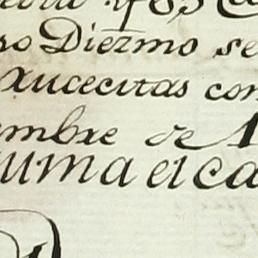 so Diezmo se
xucecitas con
embre de 1
uma el ca